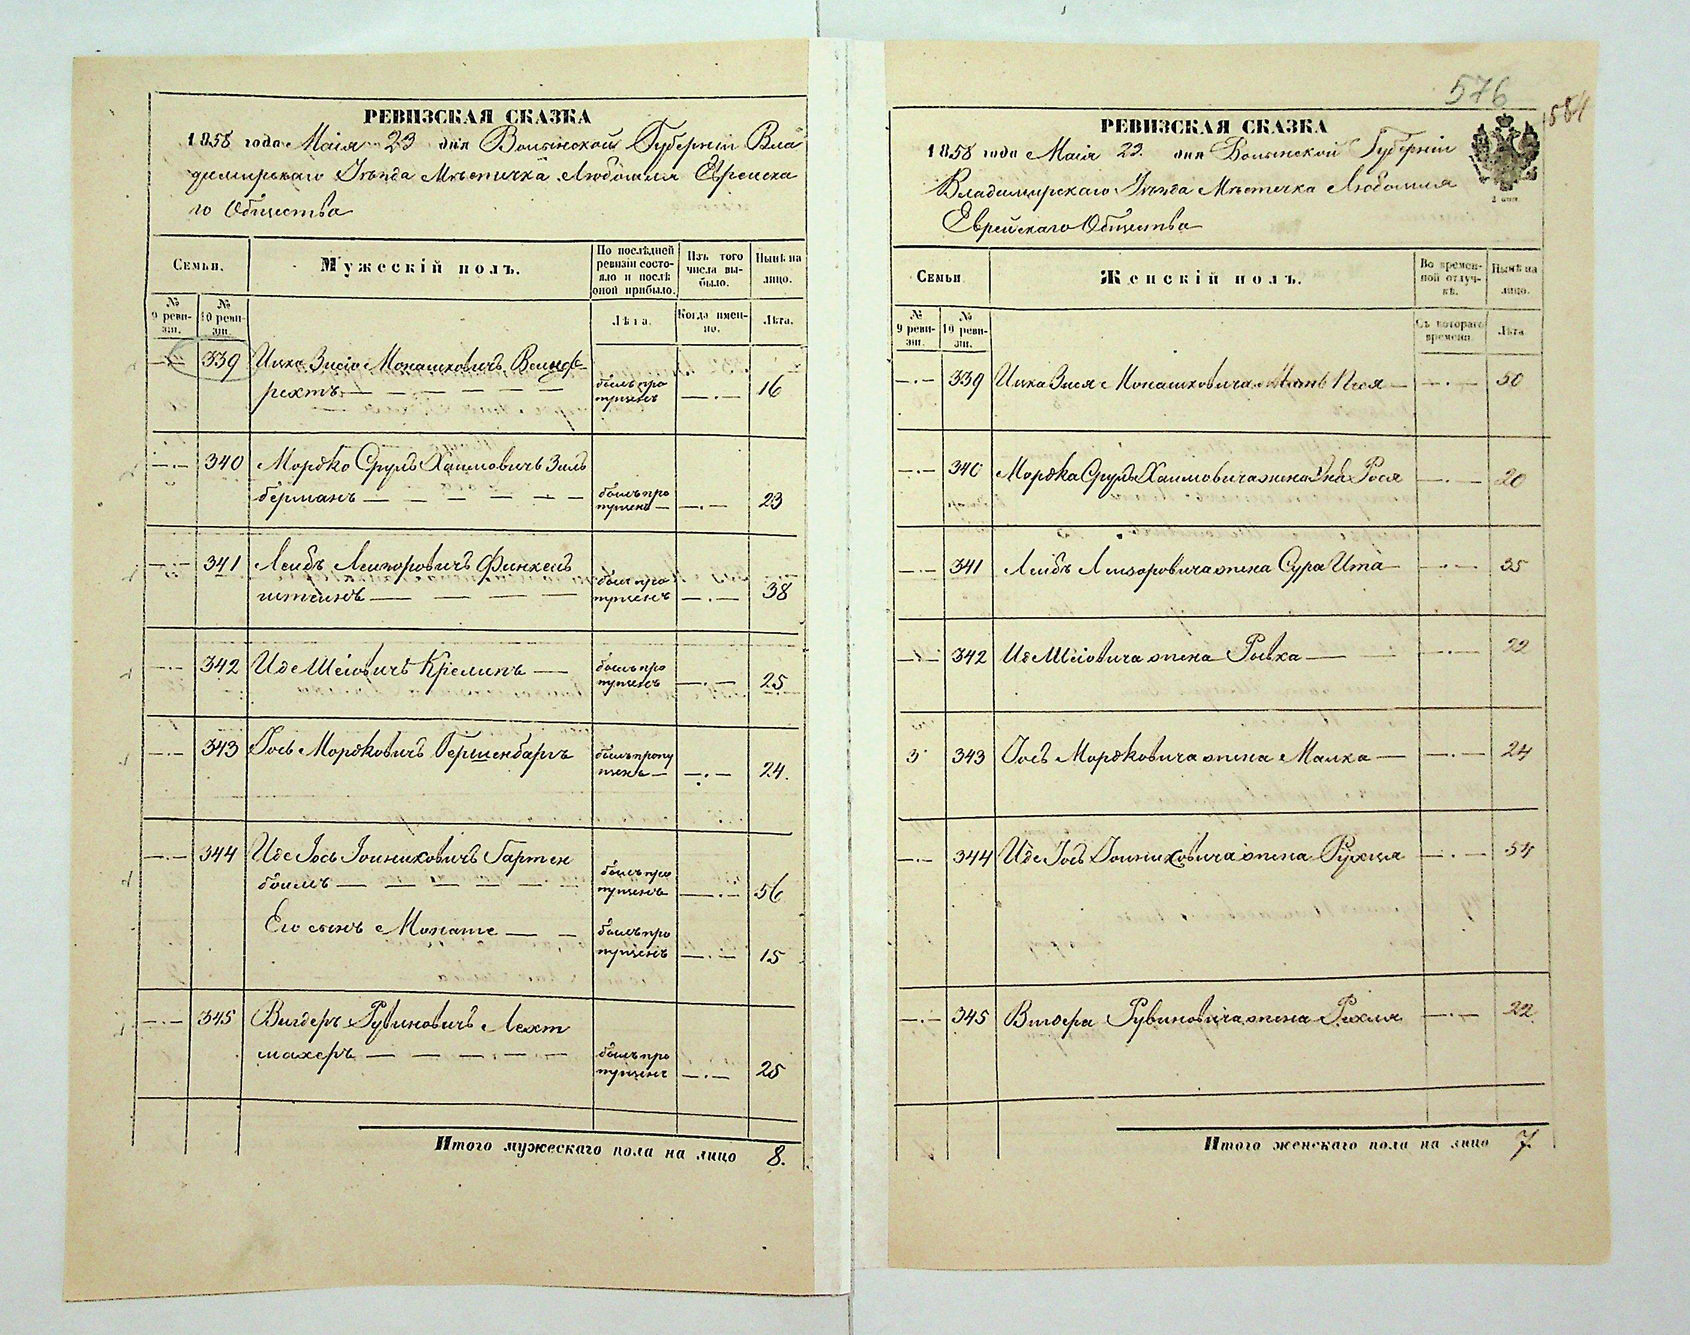 РЕВИЗСКАЯ СКАЗКА
1858 года Маія 23 дня Волынской Губерніи Вла
димирскаго Уѣзда Мѣстечка Любомля Еврейска
го Общества
Семьи.
Мужескій полъ.
По послѣдней ревизіи состояло и послѣ оной прибыло.
Изъ того числа выбыло.
Нынѣ на лицо.
№ 9 ревизіи.
№ 10 ревизіи.
Лѣта.
Когда именно.
Лѣта.
339 Ицко Зися Монашковичъ
рехтъ былъ пропущенъ 16
340 Мордко Сруль Хаимовичъ Зиль
берманъ былъ пропущенъ 23
341 Лейбъ Лейзоровичъ Финкель
штейнъ былъ пропущенъ 38
342 Иде Шеіовичъ Кремпъ былъ пропущенъ 25
343 Іось Мордковичъ Гершенбаргъ былъ пропущенъ 24.
344 Иде Іось Іойниховичъ Гартен
боимъ былъ пропущенъ 56
Его сынъ Монаше былъ пропущенъ 15
345 Вигдеръ Рувиновичъ Лехт
махеръ былъ пропущенъ 25
Итого мужескаго пола на лицо 8.
576
584
РЕВИЗСКАЯ СКАЗКА
1858 года Маія 23. дня Волынской Губерніи
Владимирскаго Уѣзда Мѣстечка Любомля
Еврейскаго Общества
Семьи
Женскій полъ.
Во временной отлучкѣ.
Нынѣ на лицо.
№ 9 ревизіи.
№ 10 ревизіи.
Съ котораго времени.
Лѣта.
339 Ицка Зися Монашковича Мать Песя 50
340 Мордка Сруль Хаимовича жена Рося 20
341 Лейбъ Лейзоровича жена Сура Ита 35
342 Иде Шеіовича жена Ривка 22
343 Іось Мордковича жена Малка 24
344 Иде Іось Іойниховича жена Рухля 54
345 Вигдера Рувиновича жена Рахля 22
Итого женскаго пола на лицо 7.